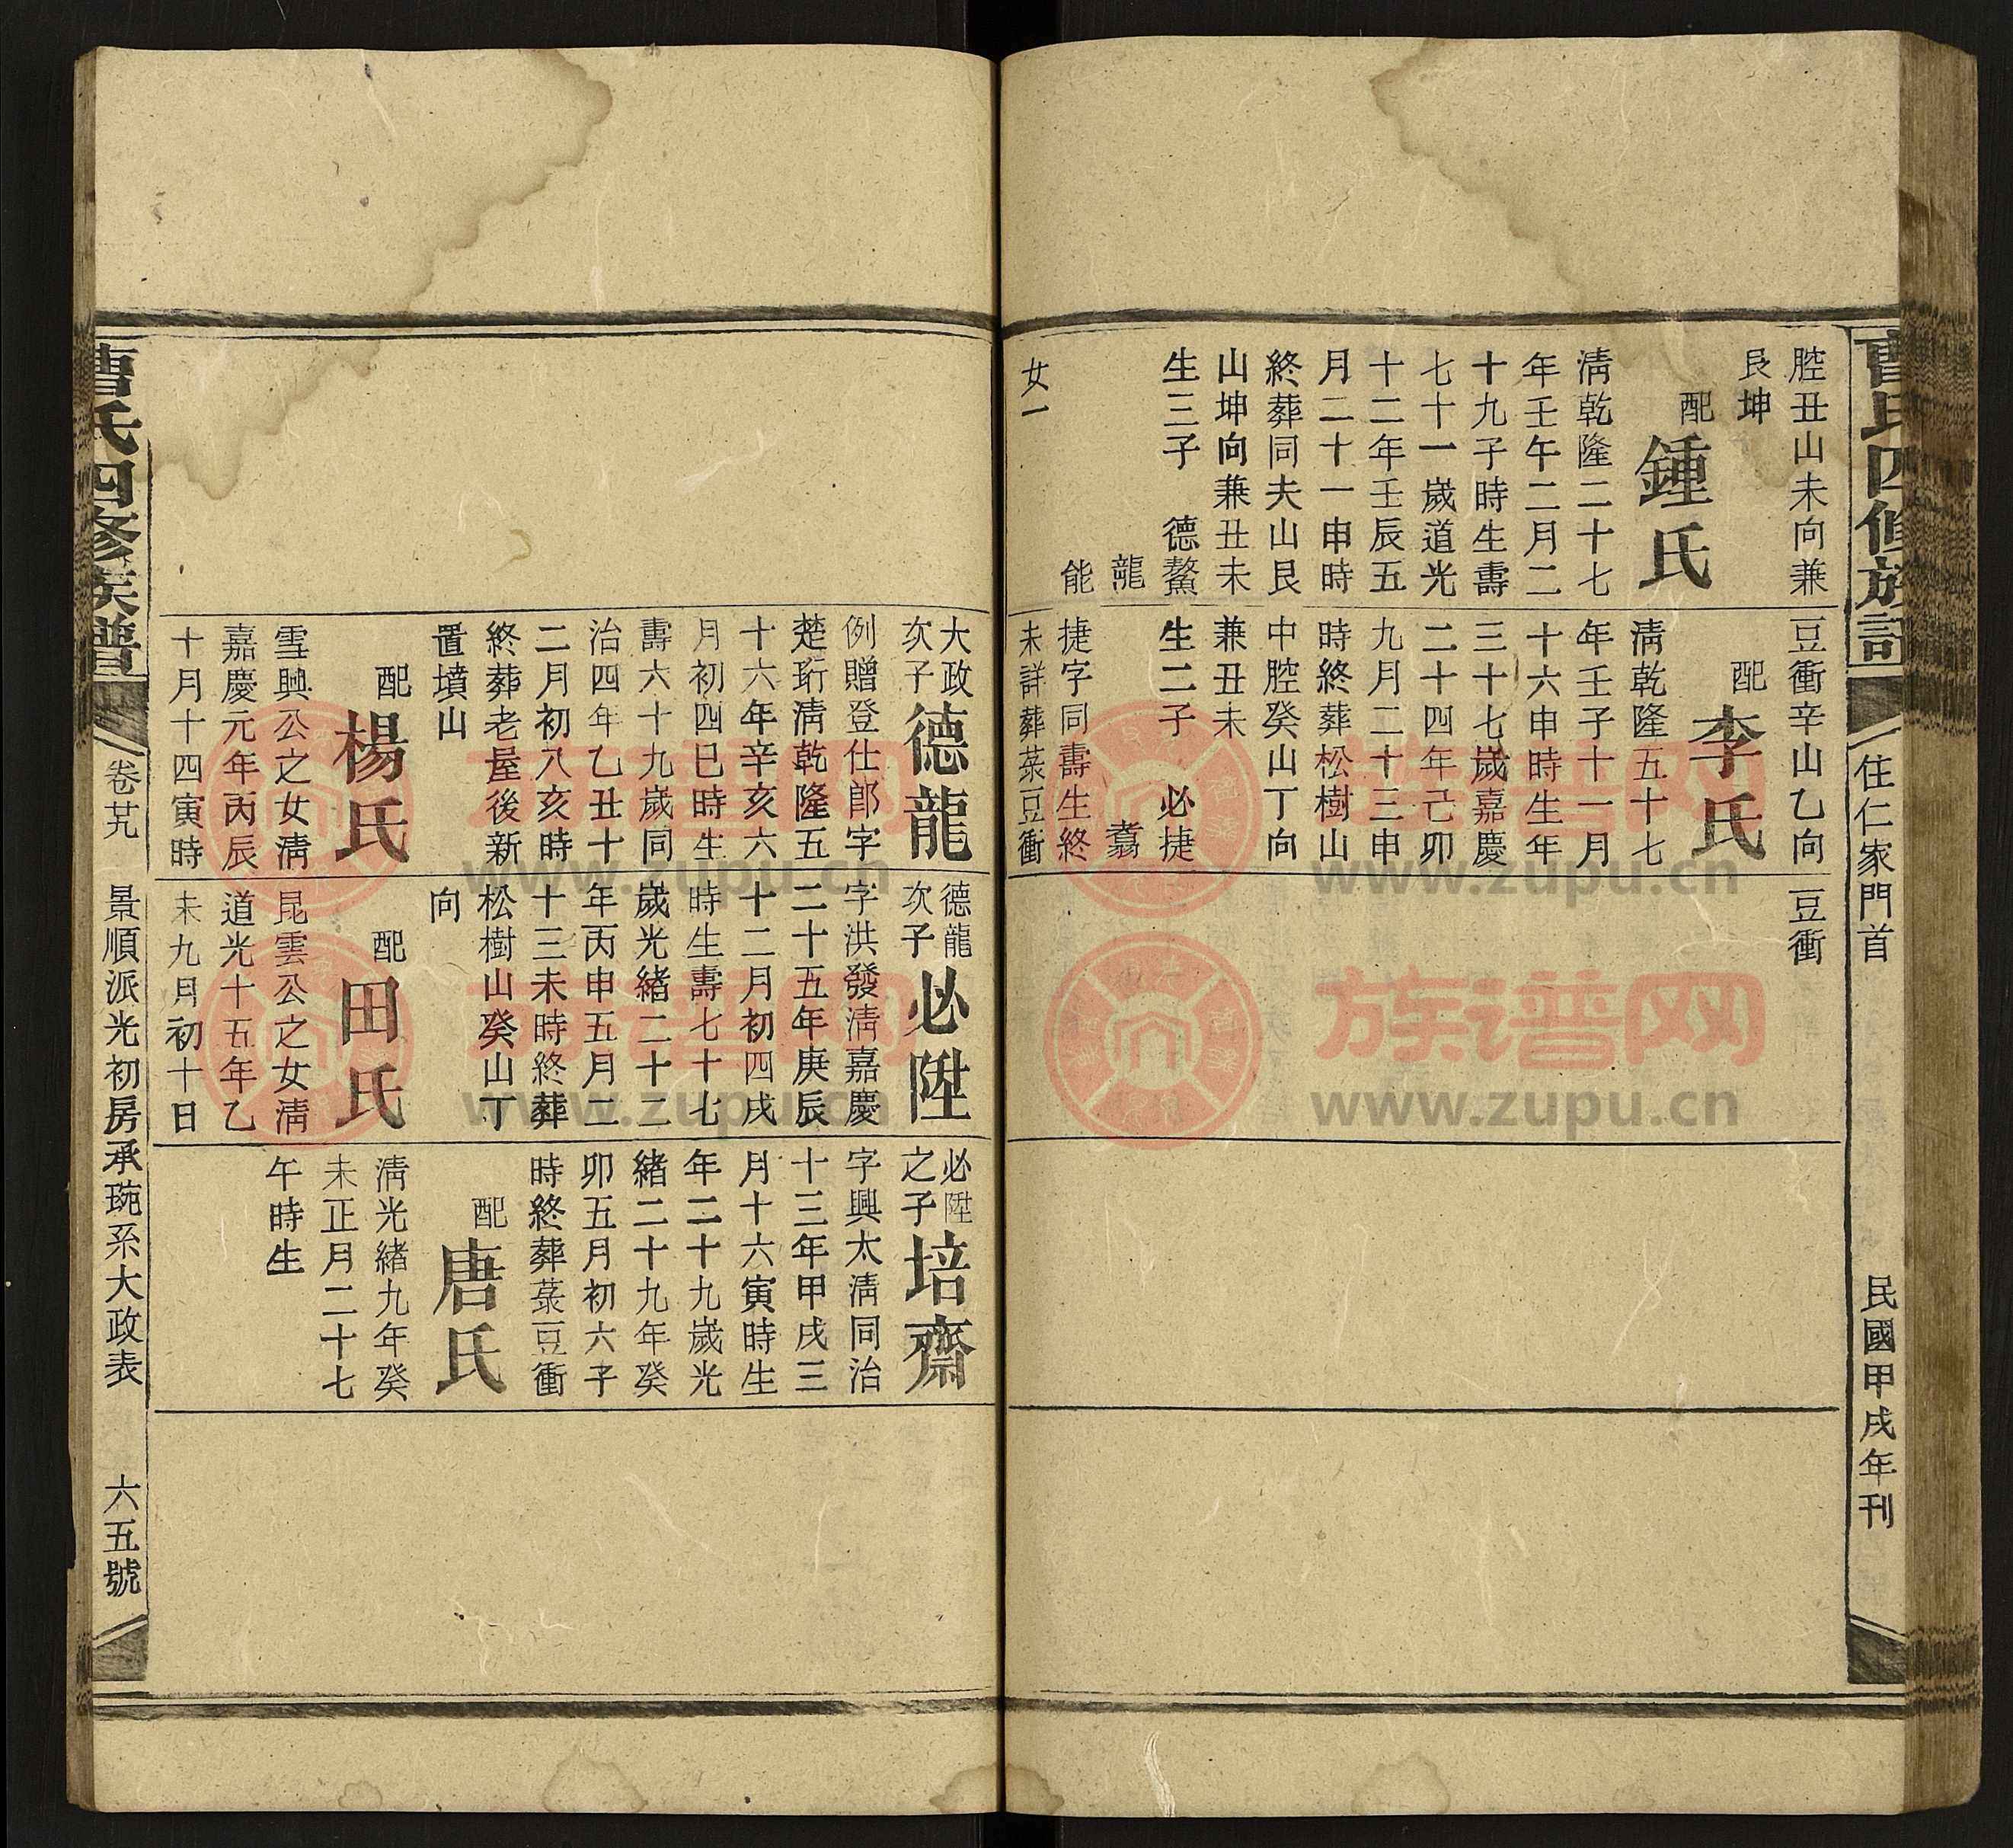 曹氏四修族譜
住仁家門首
民國甲戌年刊
腔丑山未向兼
艮坤
配鍾氏
淸乾隆二十七
年壬午二月二
十九子時生壽
七十一歲道光
十二年壬辰五
月二十一申時
終葬同夫山艮
山坤向兼丑未
生三子 德鰲
龍
能
女一
豆衝辛山乙向
配李氏
淸乾隆五十七
年壬子十一月
十六申時生年
三十七歲嘉慶
二十四年己卯
九月二十三申
時終葬松樹山
中腔癸山丁向
兼丑未
生二子 必捷
翥
捷字同壽生終
未詳葬菉豆衝
豆衝
大政
次子
德龍
例贈登仕郎字
楚珩淸乾隆五
十六年辛亥六
月初四巳時生
壽六十九歲同
治四年乙丑十
二月初八亥時
終葬老屋後新
置墳山
配楊氏
雪興公之女淸
嘉慶元年丙辰
十月十四寅時
德龍
次子
必陞
字洪發淸嘉慶
二十五年庚辰
十二月初四戌
時生壽七十七
歲光緒二十二
年丙申五月二
十三未時終葬
松樹山癸山丁
向
配田氏
昆雲公之女淸
道光十五年乙
未九月初十日
必陞
之子
培齋
字興太淸同治
十三年甲戌三
月十六寅時生
年二十九歲光
緒二十九年癸
卯五月初六子
時終葬菉豆衝
配唐氏
淸光緒九年癸
未正月二十七
午時生
曹氏四修族譜
卷廿九
景順派光初房承琬系大政表
六五號
族谱网
www.zupu.cn
族谱网
www.zupu.cn
族谱网
www.zupu.cn
族谱网
www.zupu.cn